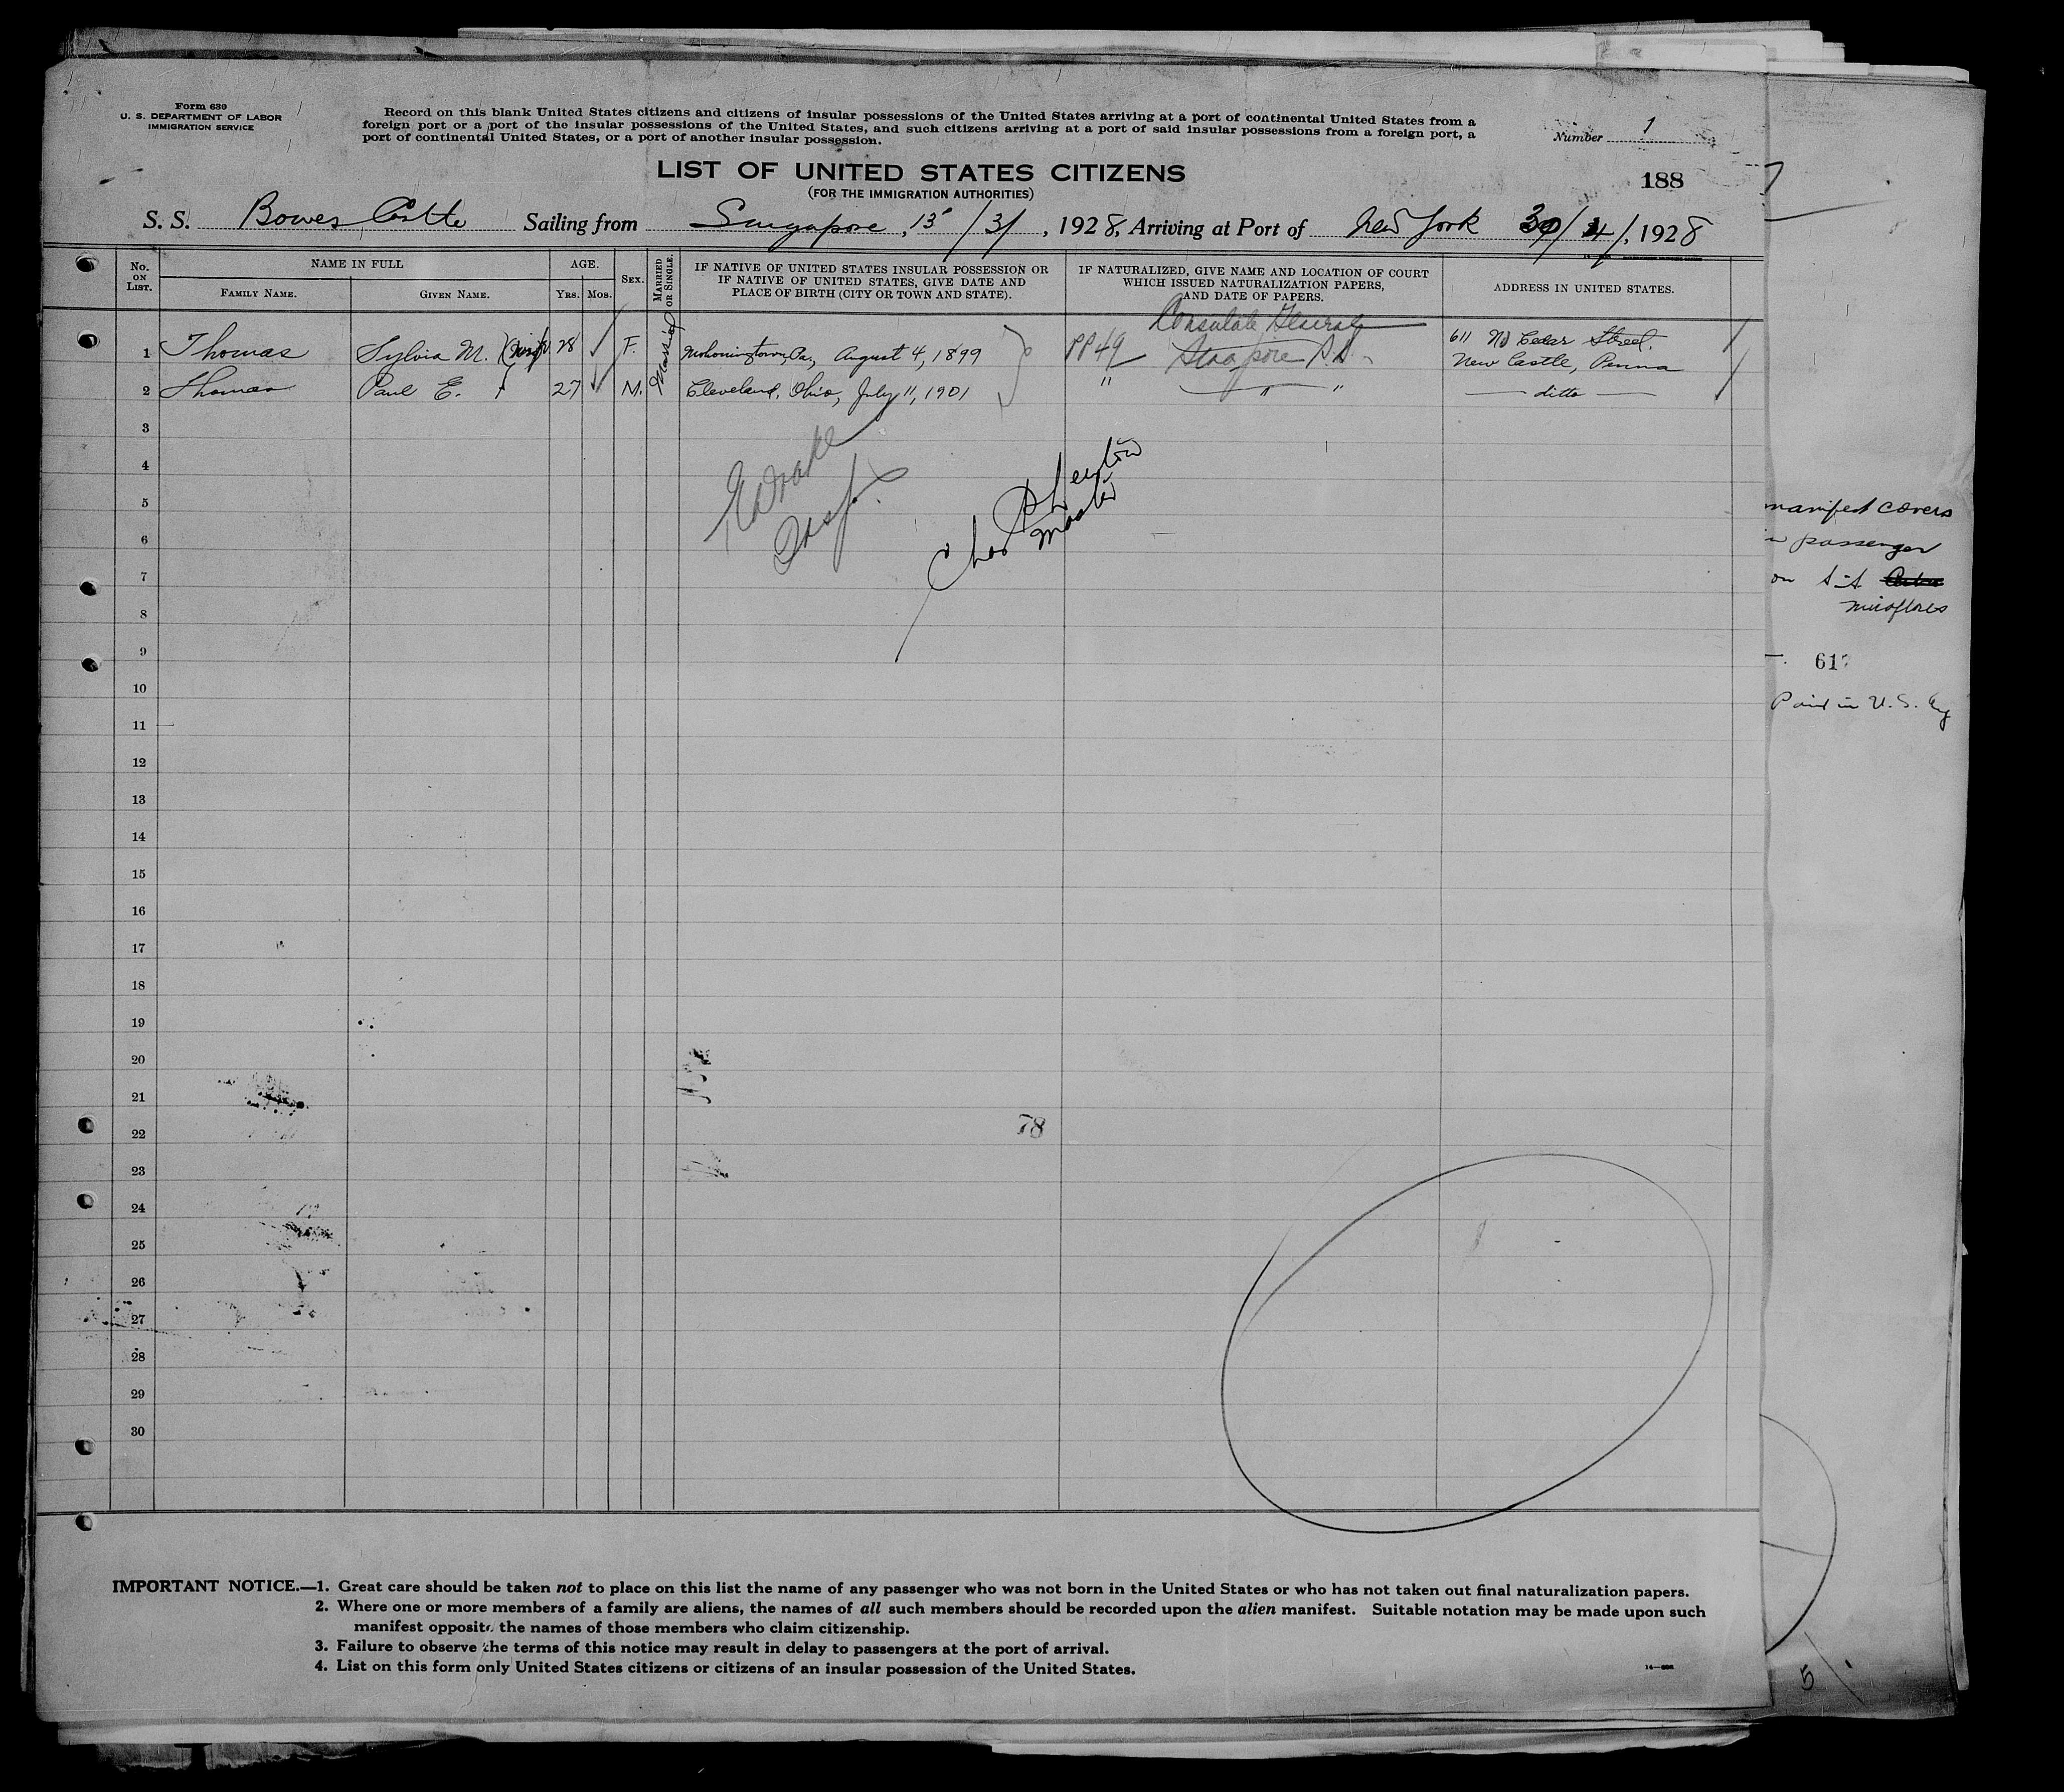 Form 630
U. S. DEPARTMENT OF LABOR
IMMIGRATION SERVICE
Record on this blank United States citizens and citizens of insular possessions of the United States arriving at a port of continental United States from a
foreign port or a port of the insular possessions of the United States, and such citizens arriving at a port of said insular possessions from a foreign port, a
port of continental United States, or a port of another insular possession.
Number 1
LIST OF UNITED STATES CITIZENS
(FOR THE IMMIGRATION AUTHORITIES)
188
S. S. Bowes Castle Sailing from Singapore, 15/3/, 1928, Arriving at Port of New York 30/4/, 1928
No. ON LIST.
NAME IN FULL
FAMILY NAME.
GIVEN NAME.
AGE.
YRS.
MOS.
SEX.
MARRIED OR SINGLE.
IF NATIVE OF UNITED STATES INSULAR POSSESSION OR
IF NATIVE OF UNITED STATES, GIVE DATE AND
PLACE OF BIRTH (CITY OR TOWN AND STATE).
IF NATURALIZED, GIVE NAME AND LOCATION OF COURT
WHICH ISSUED NATURALIZATION PAPERS,
AND DATE OF PAPERS.
ADDRESS IN UNITED STATES.
Consulate General
1 Thomas Sylvia M. 28 F. Married Mahoningtown, Pa, August 4, 1899 PP49 Singapore S.S. 611 No Cedar Street.
New Castle, Penna
2 Thomas Paul E. 27 M. Cleveland, Ohio, July 11, 1901 " " " ditto
3
4
5
6
7
8
9
10
11
12
13
14
15
16
17
18
19
20
21
22
23
24
25
26
27
28
29
30
Insp.
Master
78
manifest covers
passenger
on S.S.
Miraflores
617
Paid in U.S.
5
IMPORTANT NOTICE.—1. Great care should be taken not to place on this list the name of any passenger who was not born in the United States or who has not taken out final naturalization papers.
2. Where one or more members of a family are aliens, the names of all such members should be recorded upon the alien manifest. Suitable notation may be made upon such
manifest opposite the names of those members who claim citizenship.
3. Failure to observe the terms of this notice may result in delay to passengers at the port of arrival.
4. List on this form only United States citizens or citizens of an insular possession of the United States.